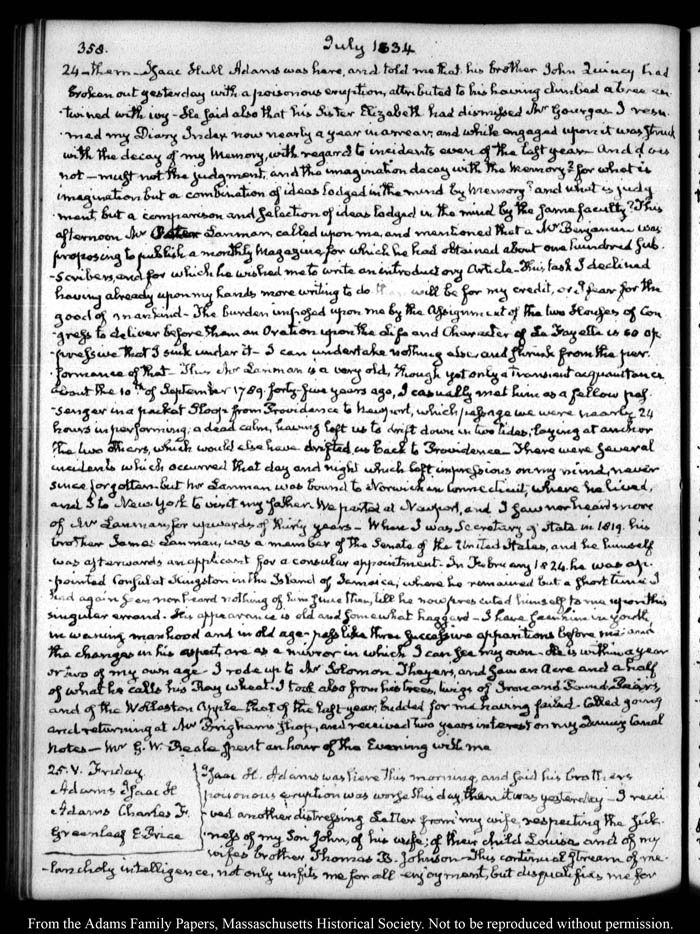 358.
July 1834
24 - them - Isaac Hull Adams was here, and told me that his brother John Quincy had
broken out yesterday with a poisonous eruption, attributed to his having climbed a tree en-
twined with ivy - He said also that his Sister Elizabeth had dismissed Mr Gourgas I resu-
-med my Diary Index now nearly a year in arrear; and while engaged upon it was struck
with the decay of my Memory, with regard to incidents even of the last year - And does
not - must not the Judgment, and the imagination decay with the Memory? for what is
imagination but a combination of ideas lodged in the mind by Memory? and what is judg-
ment, but a comparison and Selection of ideas lodged in the mind by the same faculty? This
afternoon Mr Peter Lanman, called upon me, and mentioned that a Mr Benjamin was
proposing to publish a monthly Magazine, for which he had obtained about one hundred Sub-
-scribers, and for which he wished me to write an introductory Article - This task I declined
having already upon my hands more writing to do than will be for my credit, or I fear for the
good of mankind - The burden imposed upon me by the Assignment of the two Houses of Con-
gress to deliver before them an Oration upon the Life and Character of La Fayette is so op-
-pressive that I sink under it - I can undertake nothing else and shrink from the per-
-formance of that - This Mr Lanman is a very old, though yet only a transient acquaintance
About the 10th of September 1789. forty-five years ago, I casually met him as a fellow pas-
-senger in a packet Sloop from Providence to Newport, which passage we were nearly 24
hours in performing; a dead calm, having left us to drift down in two tides; laying at anchor
the two others, which would else have drifted us back to Providence - There were several
incidents which occurred that day and night which left impressions on my mind, never
since forgotten - but Mr Lanman was bound to Norwich in Connecticut, where he lived,
and I to New York to visit my father. We parted at Newport, and I saw nor heard more
of Mr Lanman, for upwards of thirty years - When I was Secretary of State in 1819. his
brother James Lanman, was a member of the Senate of the United States, and he himself
was afterwards an applicant for a consular appointment. In February 1824. he was ap-
-pointed Consul at Kingston in the Island of Jamaica; where he remained but a short time. I
had again seen nor heard nothing of him since then, till he now presented himself to me upon this
singular errand. His appearance is old and somewhat haggard - I have seen him in youth,
in waning manhood and in old age - pass like three successive apparitions before me; and
the changes in his aspect, are as a mirror in which I can see my own - He is within a year
or two of my own age - I rode up to Mr Solomon Thayer's, and saw an Acre and a half
of what he calls his Ray wheat. I took also from his trees, twigs of Iron and Pound Pears,
and of the Wollaston Apple that of the last year, budded for me having failed - Called going
and returning at Mr Brigham's Shop, and received two years interest on my Quincy Canal
Notes - Mr G. W. Beale spent an hour of the Evening with me
25. V. Friday.
Adams Isaac H
Adams Charles F.
Greenleaf E Price
Isaac H. Adams was here this morning, and said his brother's
poisonous eruption was worse this day, than it was yesterday - I recei-
-ved another distressing Letter from my wife, respecting the sick-
-ness of my Son John, of his wife; of their child Louisa and of my
wife's brother Thomas B. Johnson - This continual stream of me-
-lancholy intelligence, not only unfits me for all enjoyment, but disqualifies me for
From the Adams Family Papers, Massachusetts Historical Society. Not to be reproduced without permission.